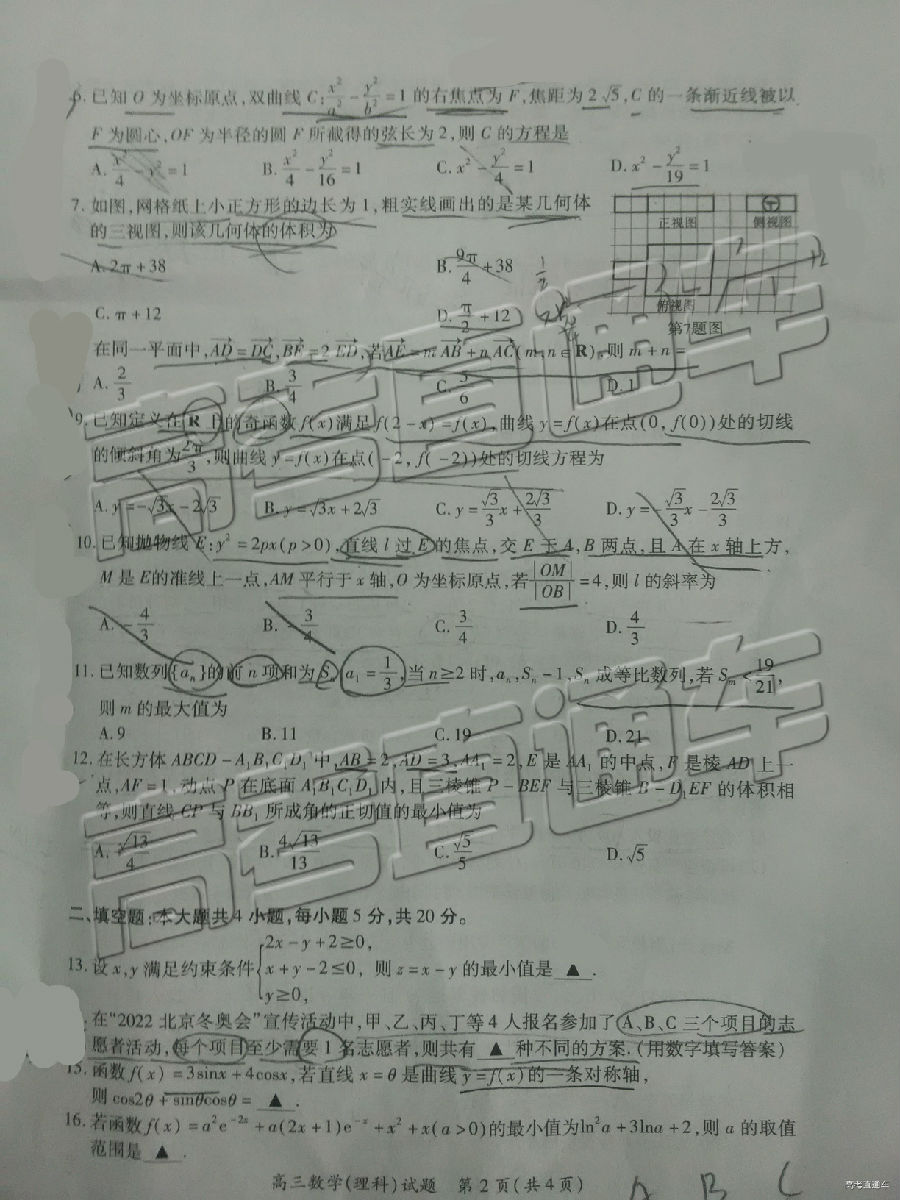 6. 已知 O 为坐标原点,双曲线 C:x²/a² - y²/b² = 1 的右焦点为 F,焦距为 2√5,C 的一条渐近线被以
F 为圆心,OF 为半径的圆 F 所截得的弦长为 2,则 C 的方程是
A. x²/4 - y² = 1 B. x²/4 - y²/16 = 1 C. x² - y²/4 = 1 D. x² - y²/19 = 1
7. 如图,网格纸上小正方形的边长为 1,粗实线画出的是某几何体
的三视图,则该几何体的体积为
正视图 侧视图
A. 2π + 38 B. 9π/4 + 38
C. π + 12 D. π/2 + 12
俯视图
第7题图
在同一平面中,AD→ = DC→,BE→ = 2 ED→,若AE→ = m AB→ + n AC→(m,n∈R),则 m + n =
A. 2/3 B. 3/4 C. 5/6 D. 1
9. 已知定义在 R 上的奇函数 f(x)满足 f(2 - x) = f(x),曲线 y = f(x)在点(0, f(0))处的切线
的倾斜角为 2π/3,则曲线 y = f(x)在点( - 2, f( - 2))处的切线方程为
A. y = - √3x - 2√3 B. y = √3x + 2√3 C. y = √3/3 x + 2√3/3 D. y = - √3/3 x - 2√3/3
10. 已知抛物线 E:y² = 2px(p > 0),直线 l 过 E 的焦点,交 E 于 A,B 两点,且 A 在 x 轴上方,
M 是 E的准线上一点,AM 平行于 x 轴,O 为坐标原点,若 |OM|/|OB| = 4,则 l 的斜率为
A. - 4/3 B. - 3/4 C. 3/4 D. 4/3
11. 已知数列{aₙ}的前 n 项和为 Sₙ,a₁ = 1/3,当 n≥2 时,aₙ,Sₙ - 1,Sₙ 成等比数列,若 Sₘ < 19/21,
则 m 的最大值为
A. 9 B. 11 C. 19 D. 21
12. 在长方体 ABCD - A₁B₁C₁D₁ 中,AB = 2,AD = 3,AA₁ = 2,E 是 AA₁ 的中点,F 是棱 AD 上一
点,AF = 1,动点 P 在底面 A₁B₁C₁D₁ 内,且三棱锥 P - BEF 与三棱锥 B - D₁EF 的体积相
等,则直线 CP 与 BB₁ 所成角的正切值的最小值为
A. √13/4 B. 4√13/13 C. √5/5 D. √5
二、填空题:本大题共 4 小题,每小题 5 分,共 20 分。
13. 设 x,y 满足约束条件 {2x - y + 2≥0, x + y - 2≤0, y≥0, 则 z = x - y 的最小值是 ▲ .
在“2022 北京冬奥会”宣传活动中,甲、乙、丙、丁等 4 人报名参加了 A、B、C 三个项目的志
愿者活动,每个项目至少需要 1 名志愿者,则共有 ▲ 种不同的方案.(用数字填写答案)
15. 函数 f(x) = 3sinx + 4cosx,若直线 x = θ 是曲线 y = f(x)的一条对称轴,
则 cos2θ + sinθcosθ = ▲ .
16. 若函数 f(x) = a²e⁻²ˣ + a(2x + 1)e⁻ˣ + x² + x(a > 0)的最小值为ln²a + 3lna + 2,则 a 的取值
范围是 ▲ .
高三数学(理科)试题 第 2 页(共 4 页)
A B C
高考直通车
高考直通车
高考直通车